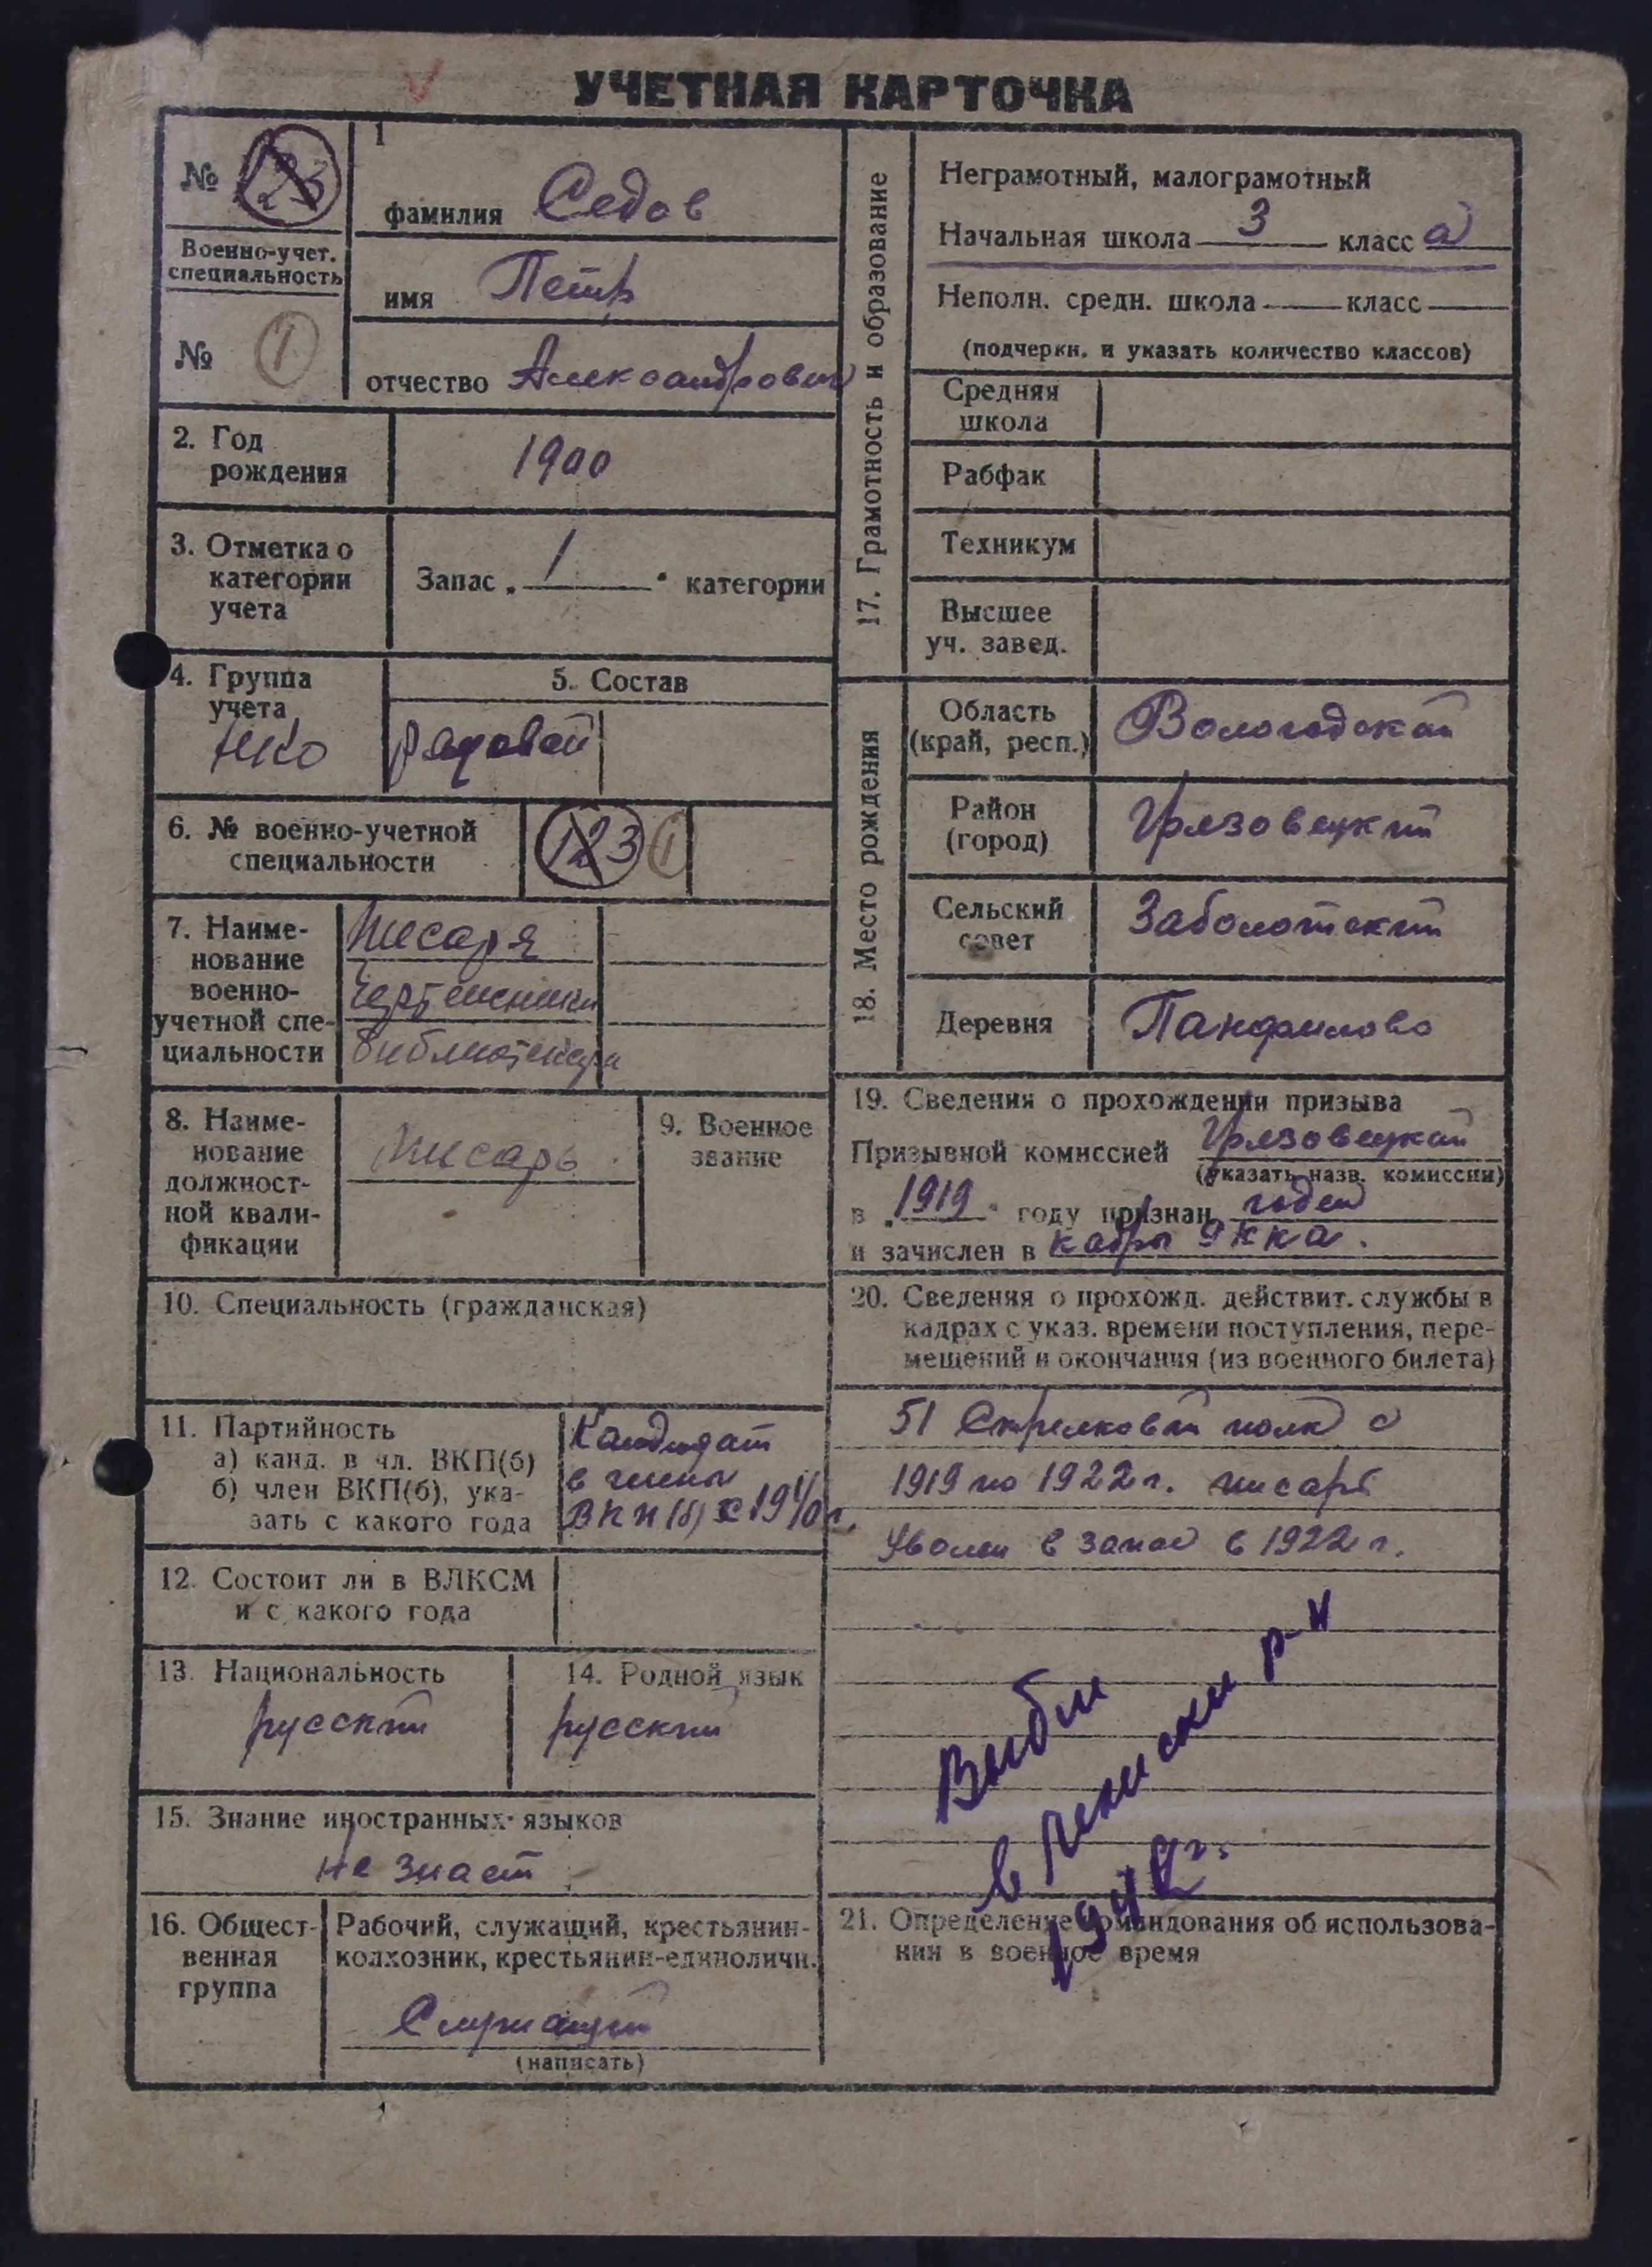 УЧЕТНАЯ КАРТОЧКА
№ 123
Военно-учет.
специальность
№ 1
1
фамилия Седов
имя Петр
отчество Александрович
2. Год
рождения
1900
3. Отметка о
категории
учета
Запас „ 1 “ категории
4. Группа
учета
НКО
5. Состав
рядовой
6. № военно-учетной
специальности
123 1
7. Наиме-
нование
военно-
учетной спе-
циальности
Писаря
чертежники
библиотекари
8. Наиме-
нование
должност-
ной квали-
фикации
Писарь
9. Военное
звание
10. Специальность (гражданская)
11. Партийность
а) канд. в чл. ВКП(б)
б) член ВКП(б), ука-
зать с какого года
Кандидат
в члены
ВКП(б) с 1940 г.
12. Состоит ли в ВЛКСМ
и с какого года
13. Национальность
русский
14. Родной язык
русский
15. Знание иностранных языков
не знает
16. Общест-
венная
группа
Рабочий, служащий, крестьянин-
колхозник, крестьянин-единоличн.
Служащий
(написать)
17. Грамотность и образование
Неграмотный, малограмотный
Начальная школа 3 класса
Неполн. средн. школа класс
(подчеркн. и указать количество классов)
Средняя
школа
Рабфак
Техникум
Высшее
уч. завед.
18. Место рождения
Область
(край, респ.)
Вологодской
Район
(город)
Грязовецкий
Сельский
совет
Заболотский
Деревня
Панфилово
19. Сведения о прохождении призыва
Призывной комиссией Грязовецкой
(указать назв. комиссии)
в „ 1919 “ году признан годен
и зачислен в кадры РККА.
20. Сведения о прохожд. действит. службы в
кадрах с указ. времени поступления, пере-
мещений и окончания (из военного билета)
51 Стрелковый полк с
1919 по 1922 г. писарь
Уволен в запас в 1922 г.
Выбыл
в р-н
21. Определение командования об использова-
нии в военное время